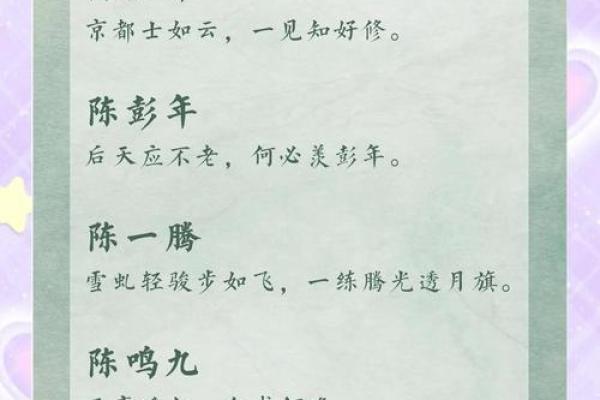 京都士如云，一见知好修。
陈彭年
后天应不老，何必羡彭年。
陈一腾
雪虬轻骏步如飞，一练腾光透月旗。
陈鸣九